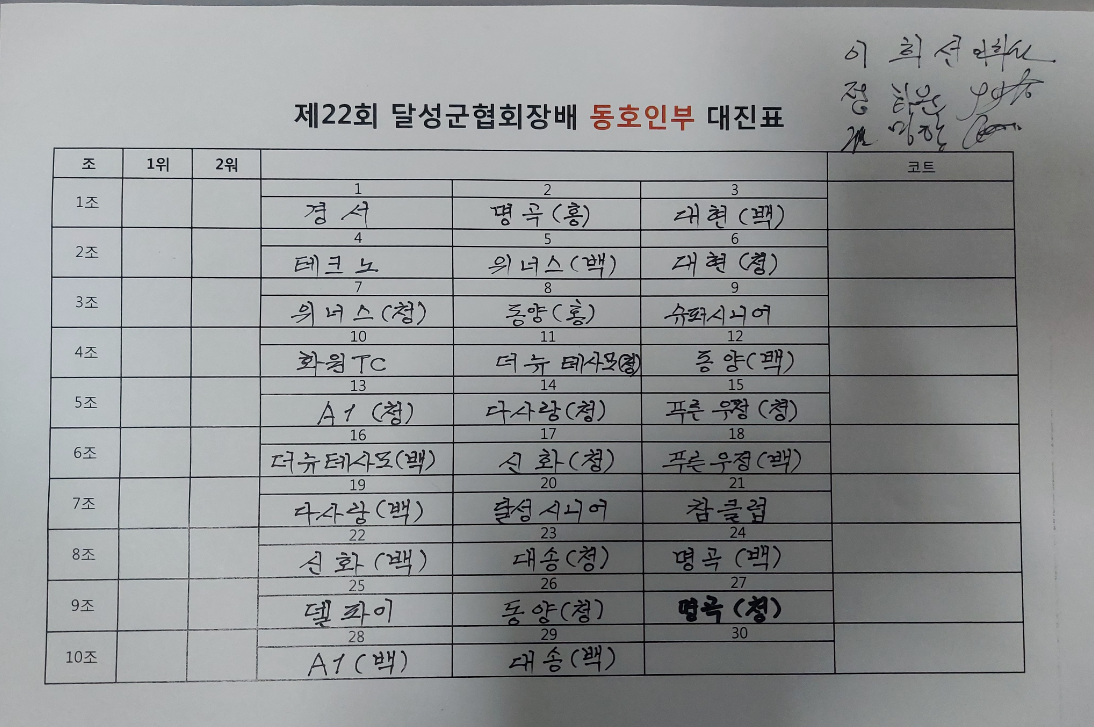 이 희 선
정
제22회 달성군협회장배 동호인부 대진표
조 1위 2워 코트
1 2 3
1조 경 서 명 곡 (홍) 대 현 (백)
4 5 6
2조 테 크 노 위 너 스 (백) 대 현 (청)
7 8 9
3조 위 너 스 (청) 동양 (홍) 슈퍼시니어
10 11 12
4조 화 원 TC 더 뉴 테사모(청) 동 양 (백)
13 14 15
5조 A1 (청) 다사랑 (청) 푸른 우정 (청)
16 17 18
6조 더뉴테사모(백) 신 화 (청) 푸른우정 (백)
19 20 21
7조 다사랑 (백) 달성 시니어 참클럽
22 23 24
8조 신 화 (백) 대송 (청) 명곡 (백)
25 26 27
9조 델 파이 동 양 (청) 명곡 (청)
28 29 30
10조 A1 (백) 대송 (백)